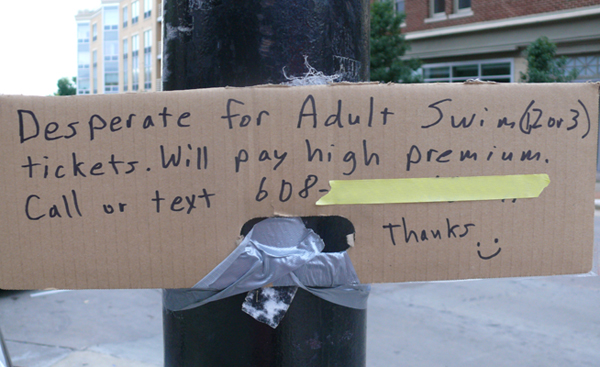 Desperate for Adult Swim (1,2 or 3)
tickets. Will pay high premium.
Call or text 608-
Thanks :)